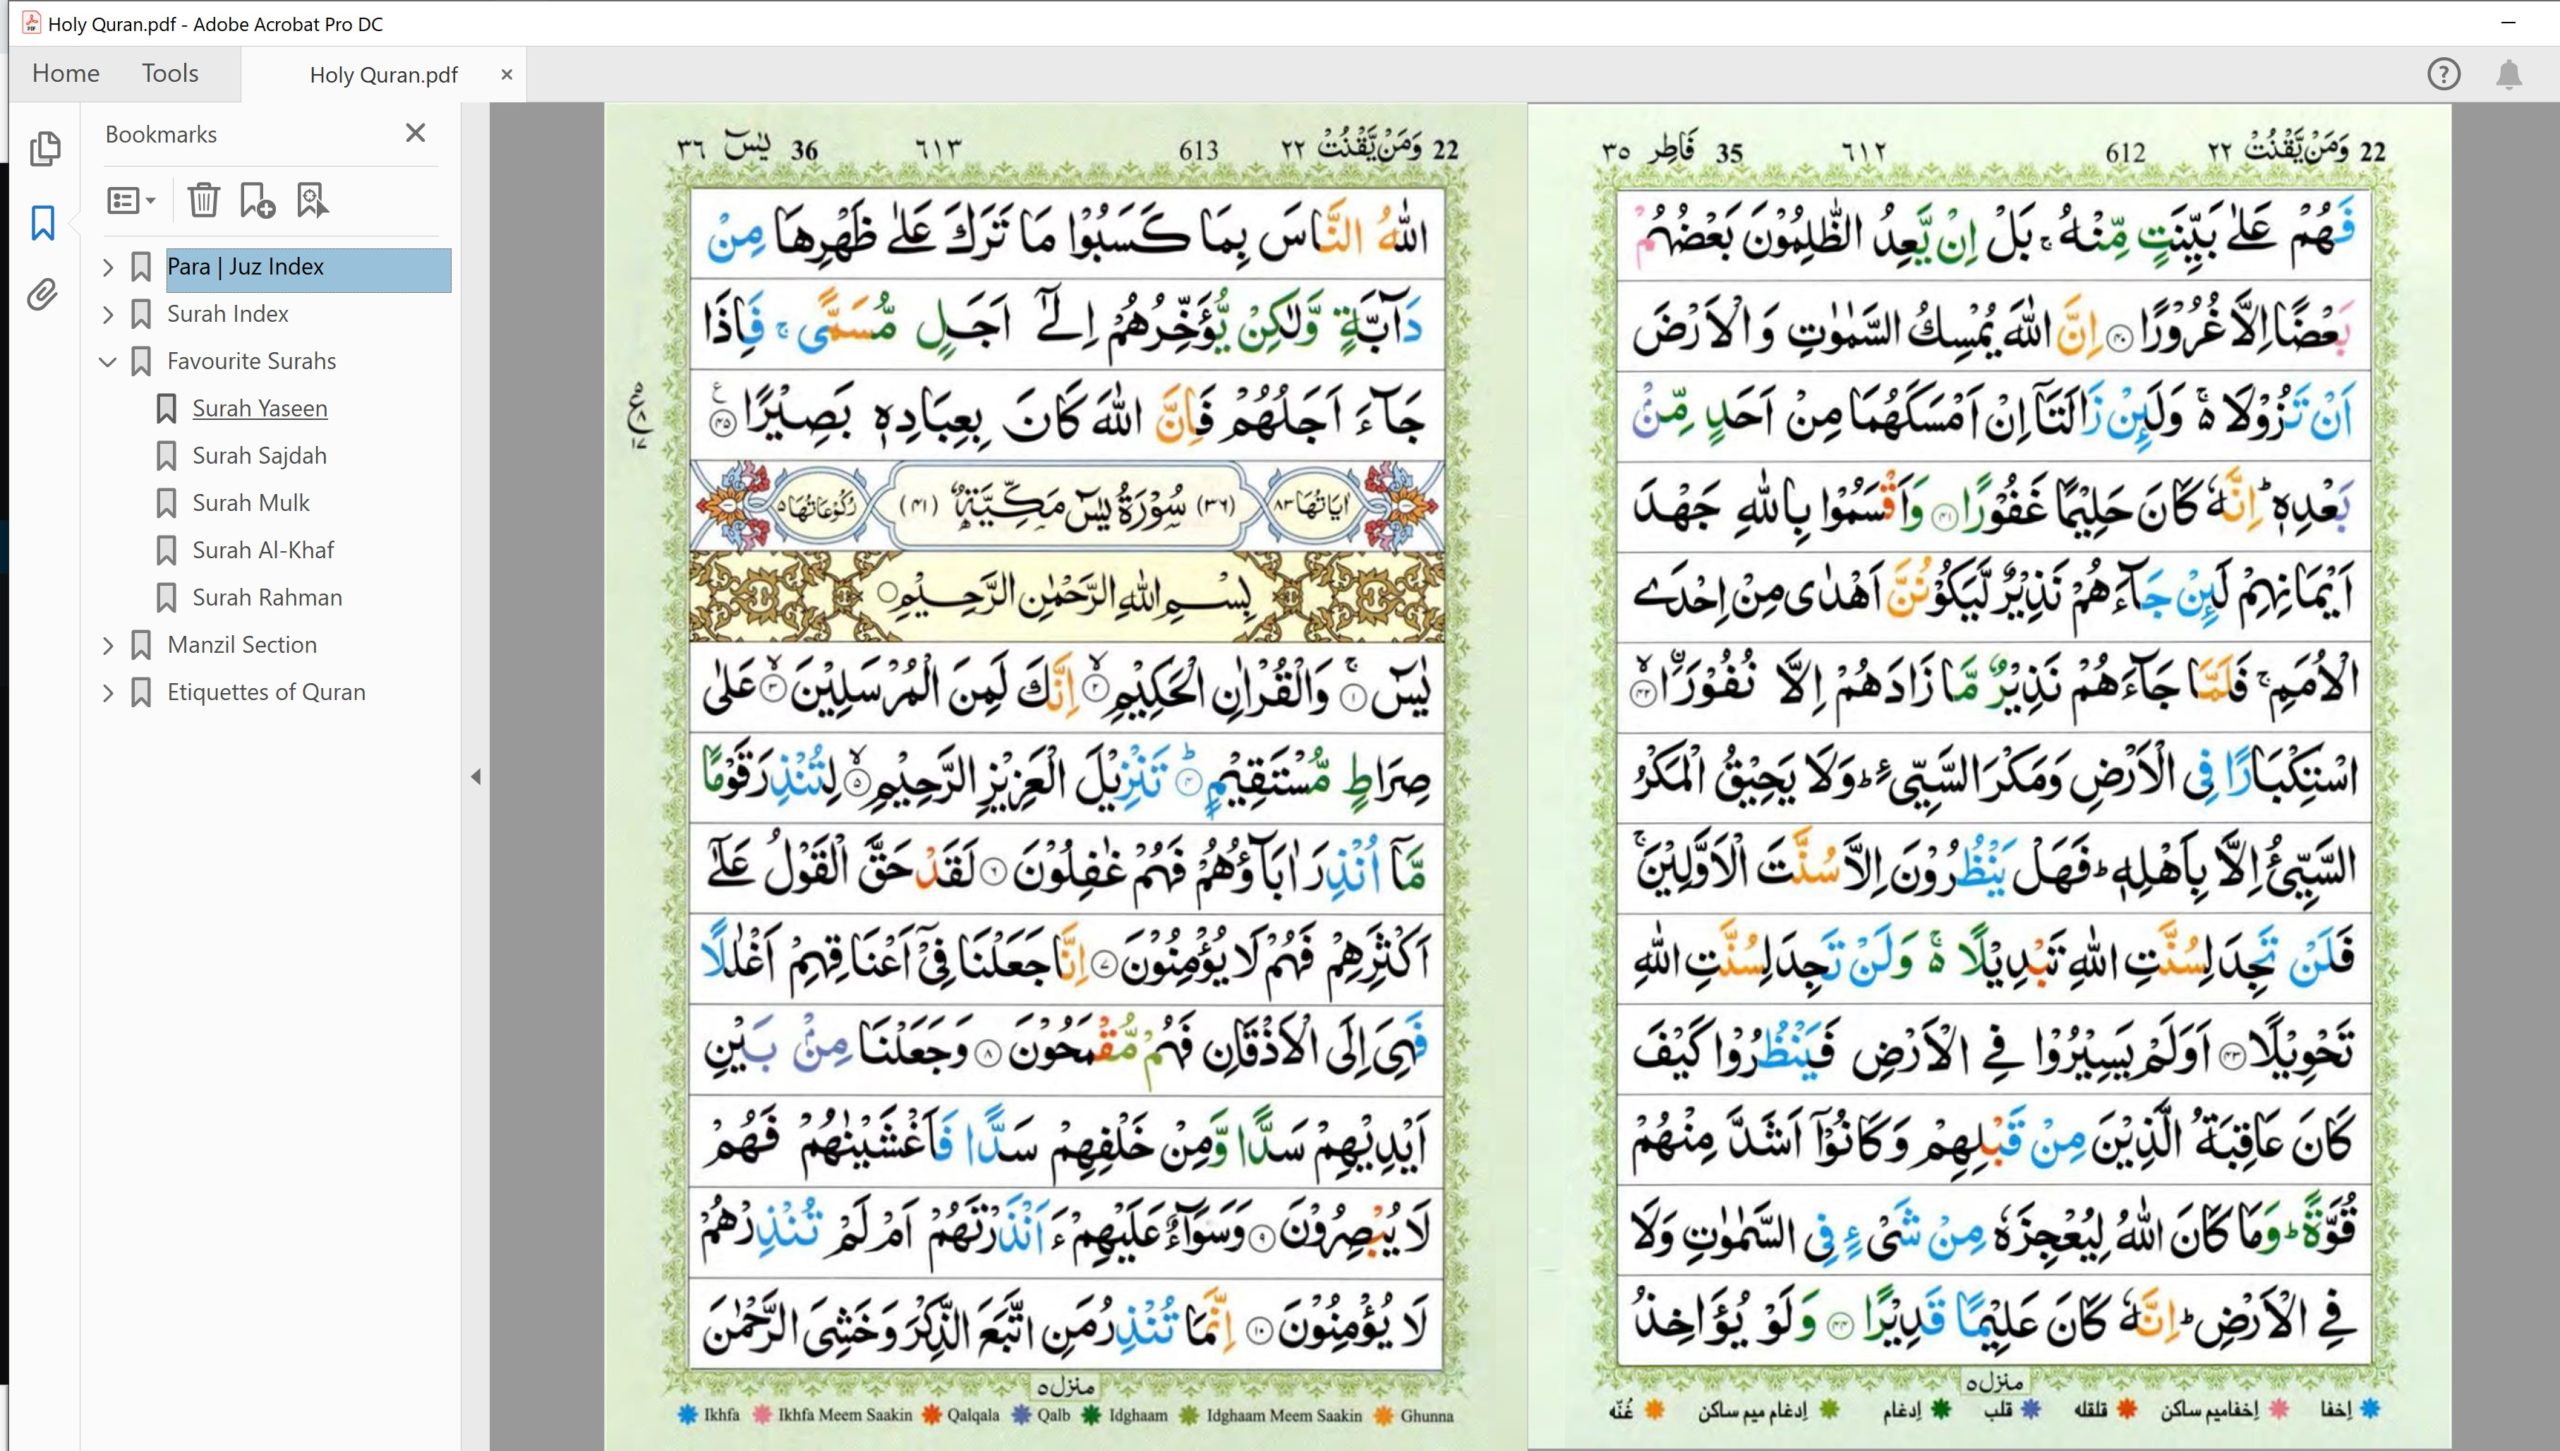 Holy Quran.pdf - Adobe Acrobat Pro DC
Home
Tools
Holy Quran.pdf
Bookmarks
Para | Juz Index
Surah Index
Favourite Surahs
Surah Yaseen
Surah Sajdah
Surah Mulk
Surah Al-Khaf
Surah Rahman
Manzil Section
Etiquettes of Quran
22 وَمَنْ يَّقْنُتْ ٢٢ 612 ٦١٢ 35 فَاطِر ٣٥
فَهُمْ عَلٰى بَيِّنَتٍ مِّنْهُ ۚ بَلْ اِنْ يَّعِدُ الظّٰلِمُوْنَ بَعْضُهُمْ
بَعْضًا اِلَّا غُرُوْرًا ۝۴۰ اِنَّ اللّٰهَ يُمْسِكُ السَّمٰوٰتِ وَالْاَرْضَ
اَنْ تَزُوْلَا ۚ۬ وَلَئِنْ زَالَتَاۤ اِنْ اَمْسَكَهُمَا مِنْ اَحَدٍ مِّنْۢ
بَعْدِهٖ ؕ اِنَّهٗ كَانَ حَلِيْمًا غَفُوْرًا ۝۴۱ وَاَقْسَمُوْا بِاللّٰهِ جَهْدَ
اَيْمَانِهِمْ لَئِنْ جَآءَهُمْ نَذِيْرٌ لَّيَكُوْنُنَّ اَهْدٰى مِنْ اِحْدَى
الْاُمَمِ ۚ فَلَمَّا جَآءَهُمْ نَذِيْرٌ مَّا زَادَهُمْ اِلَّا نُفُوْرًا ۝۴۲
اسْتِكْبَارًا فِى الْاَرْضِ وَمَكْرَ السَّيِّئِ ؕ وَلَا يَحِيْقُ الْمَكْرُ
السَّيِّئُ اِلَّا بِاَهْلِهٖ ؕ فَهَلْ يَنْظُرُوْنَ اِلَّا سُنَّتَ الْاَوَّلِيْنَ ۚ
فَلَنْ تَجِدَ لِسُنَّتِ اللّٰهِ تَبْدِيْلًا ۚ۬ وَلَنْ تَجِدَ لِسُنَّتِ اللّٰهِ
تَحْوِيْلًا ۝۴۳ اَوَلَمْ يَسِيْرُوْا فِى الْاَرْضِ فَيَنْظُرُوْا كَيْفَ
كَانَ عَاقِبَةُ الَّذِيْنَ مِنْ قَبْلِهِمْ وَكَانُوْۤا اَشَدَّ مِنْهُمْ
قُوَّةً ؕ وَمَا كَانَ اللّٰهُ لِيُعْجِزَهٗ مِنْ شَىْءٍ فِى السَّمٰوٰتِ وَلَا
فِى الْاَرْضِ ؕ اِنَّهٗ كَانَ عَلِيْمًا قَدِيْرًا ۝۴۴ وَلَوْ يُؤَاخِذُ
منزل ٥
اِخفا اِخفامیم ساکن قلقله قلب اِدغام اِدغام میم ساکن غُنّه
22 وَمَنْ يَّقْنُتْ ٢٢ 613 ٦١٣ 36 يٰسٓ ٣٦
اللّٰهُ النَّاسَ بِمَا كَسَبُوْا مَا تَرَكَ عَلٰى ظَهْرِهَا مِنْ
دَآبَّةٍ وَّلٰكِنْ يُّؤَخِّرُهُمْ اِلٰٓى اَجَلٍ مُّسَمًّى ۚ فَاِذَا
جَآءَ اَجَلُهُمْ فَاِنَّ اللّٰهَ كَانَ بِعِبَادِهٖ بَصِيْرًا ۝۴۵
ع ٥ ٨ ١٧
اٰيَاتُهَا ٨٣ (٣٦) سُوْرَةُ يٰسٓ مَكِّيَّةٌ (٤١) رُكُوْعَاتُهَا ٥
بِسْمِ اللّٰهِ الرَّحْمٰنِ الرَّحِيْمِ
يٰسٓ ۝۱ ۚ وَالْقُرْاٰنِ الْحَكِيْمِ ۝۲ اِنَّكَ لَمِنَ الْمُرْسَلِيْنَ ۝۳ عَلٰى
صِرَاطٍ مُّسْتَقِيْمٍ ۝۴ ؕ تَنْزِيْلَ الْعَزِيْزِ الرَّحِيْمِ ۝۵ لِتُنْذِرَ قَوْمًا
مَّاۤ اُنْذِرَ اٰبَآؤُهُمْ فَهُمْ غٰفِلُوْنَ ۝۶ لَقَدْ حَقَّ الْقَوْلُ عَلٰٓى
اَكْثَرِهِمْ فَهُمْ لَا يُؤْمِنُوْنَ ۝۷ اِنَّا جَعَلْنَا فِىْۤ اَعْنَاقِهِمْ اَغْلٰلًا
فَهِىَ اِلَى الْاَذْقَانِ فَهُمْ مُّقْمَحُوْنَ ۝۸ وَجَعَلْنَا مِنْۢ بَيْنِ
اَيْدِيْهِمْ سَدًّا وَّمِنْ خَلْفِهِمْ سَدًّا فَاَغْشَيْنٰهُمْ فَهُمْ
لَا يُبْصِرُوْنَ ۝۹ وَسَوَآءٌ عَلَيْهِمْ ءَاَنْذَرْتَهُمْ اَمْ لَمْ تُنْذِرْهُمْ
لَا يُؤْمِنُوْنَ ۝۱۰ اِنَّمَا تُنْذِرُ مَنِ اتَّبَعَ الذِّكْرَ وَخَشِىَ الرَّحْمٰنَ
منزل ٥
Ikhfa Ikhfa Meem Saakin Qalqala Qalb Idghaam Idghaam Meem Saakin Ghunna